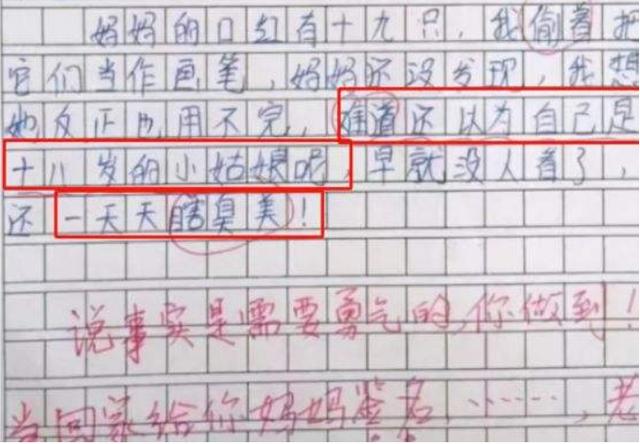 妈妈的口红有十九只,我偷着把
它们当作画笔,妈妈还没发现,我想
她反正也用不完,难道还以为自己是
十八岁的小姑娘呢,早就没人看了,
还一天天瞎臭美!
说事实是需要勇气的,你做到!
当回家给你妈妈签名……,老